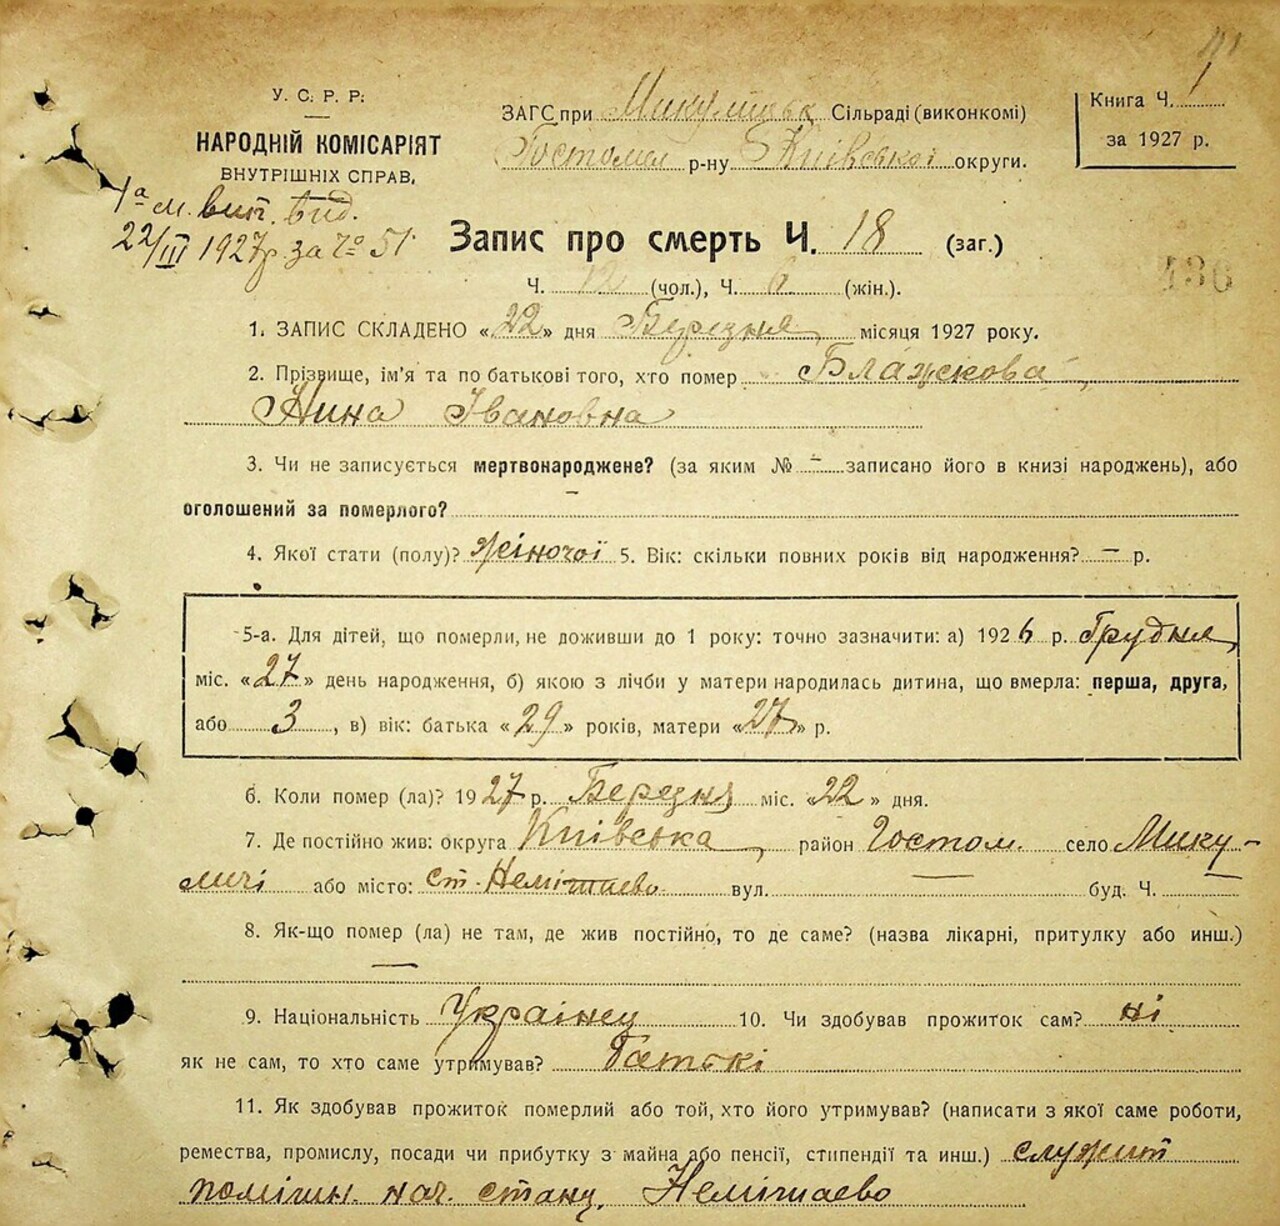 У. С. Р. Р.
НАРОДНІЙ КОМІСАРІЯТ
ВНУТРІШНІХ СПРАВ.
1а м. вип. вид.
22/III 1927р. за № 51
ЗАГС при Микулицьк Сільраді (виконкомі)
Гостомел р-ну Київської округи.
Книга Ч. 1
за 1927 р.
Запис про смерть Ч. 18 (заг.)
Ч. 12 (чол.), Ч. 6 (жін.).
136
1. ЗАПИС СКЛАДЕНО «22» дня Березня місяця 1927 року.
2. Прізвище, ім'я та по батькові того, хто помер Блажкова
Нина Івановна
3. Чи не записується мертвонароджене? (за яким № – записано його в книзі народжень), або
оголошений за померлого? –
4. Якої стати (полу)? жіночої 5. Вік: скільки повних років від народження? – р.
5-а. Для дітей, що померли, не доживши до 1 року: точно зазначити: а) 1926 р. Грудня
міс. «27» день народження, б) якою з лічби у матери народилась дитина, що вмерла: перша, друга,
або 3, в) вік: батька «29» років, матери «27» р.
6. Коли помер (ла)? 1927 р. Березня міс. «22» дня.
7. Де постійно жив: округа Київська, район Гостом. село Мику-
личі або місто: ст. Немішаево вул. – буд. Ч. –
8. Як-що помер (ла) не там, де жив постійно, то де саме? (назва лікарні, притулку або инш.)
–
9. Національність Українец 10. Чи здобував прожиток сам? ні
як не сам, то хто саме утримував? Батькі
11. Як здобував прожиток померлий або той, хто його утримував? (написати з якої саме роботи,
ремества, промислу, посади чи прибутку з майна або пенсії, стипендії та инш.) служит
помішн. нач. станц. Немішаево